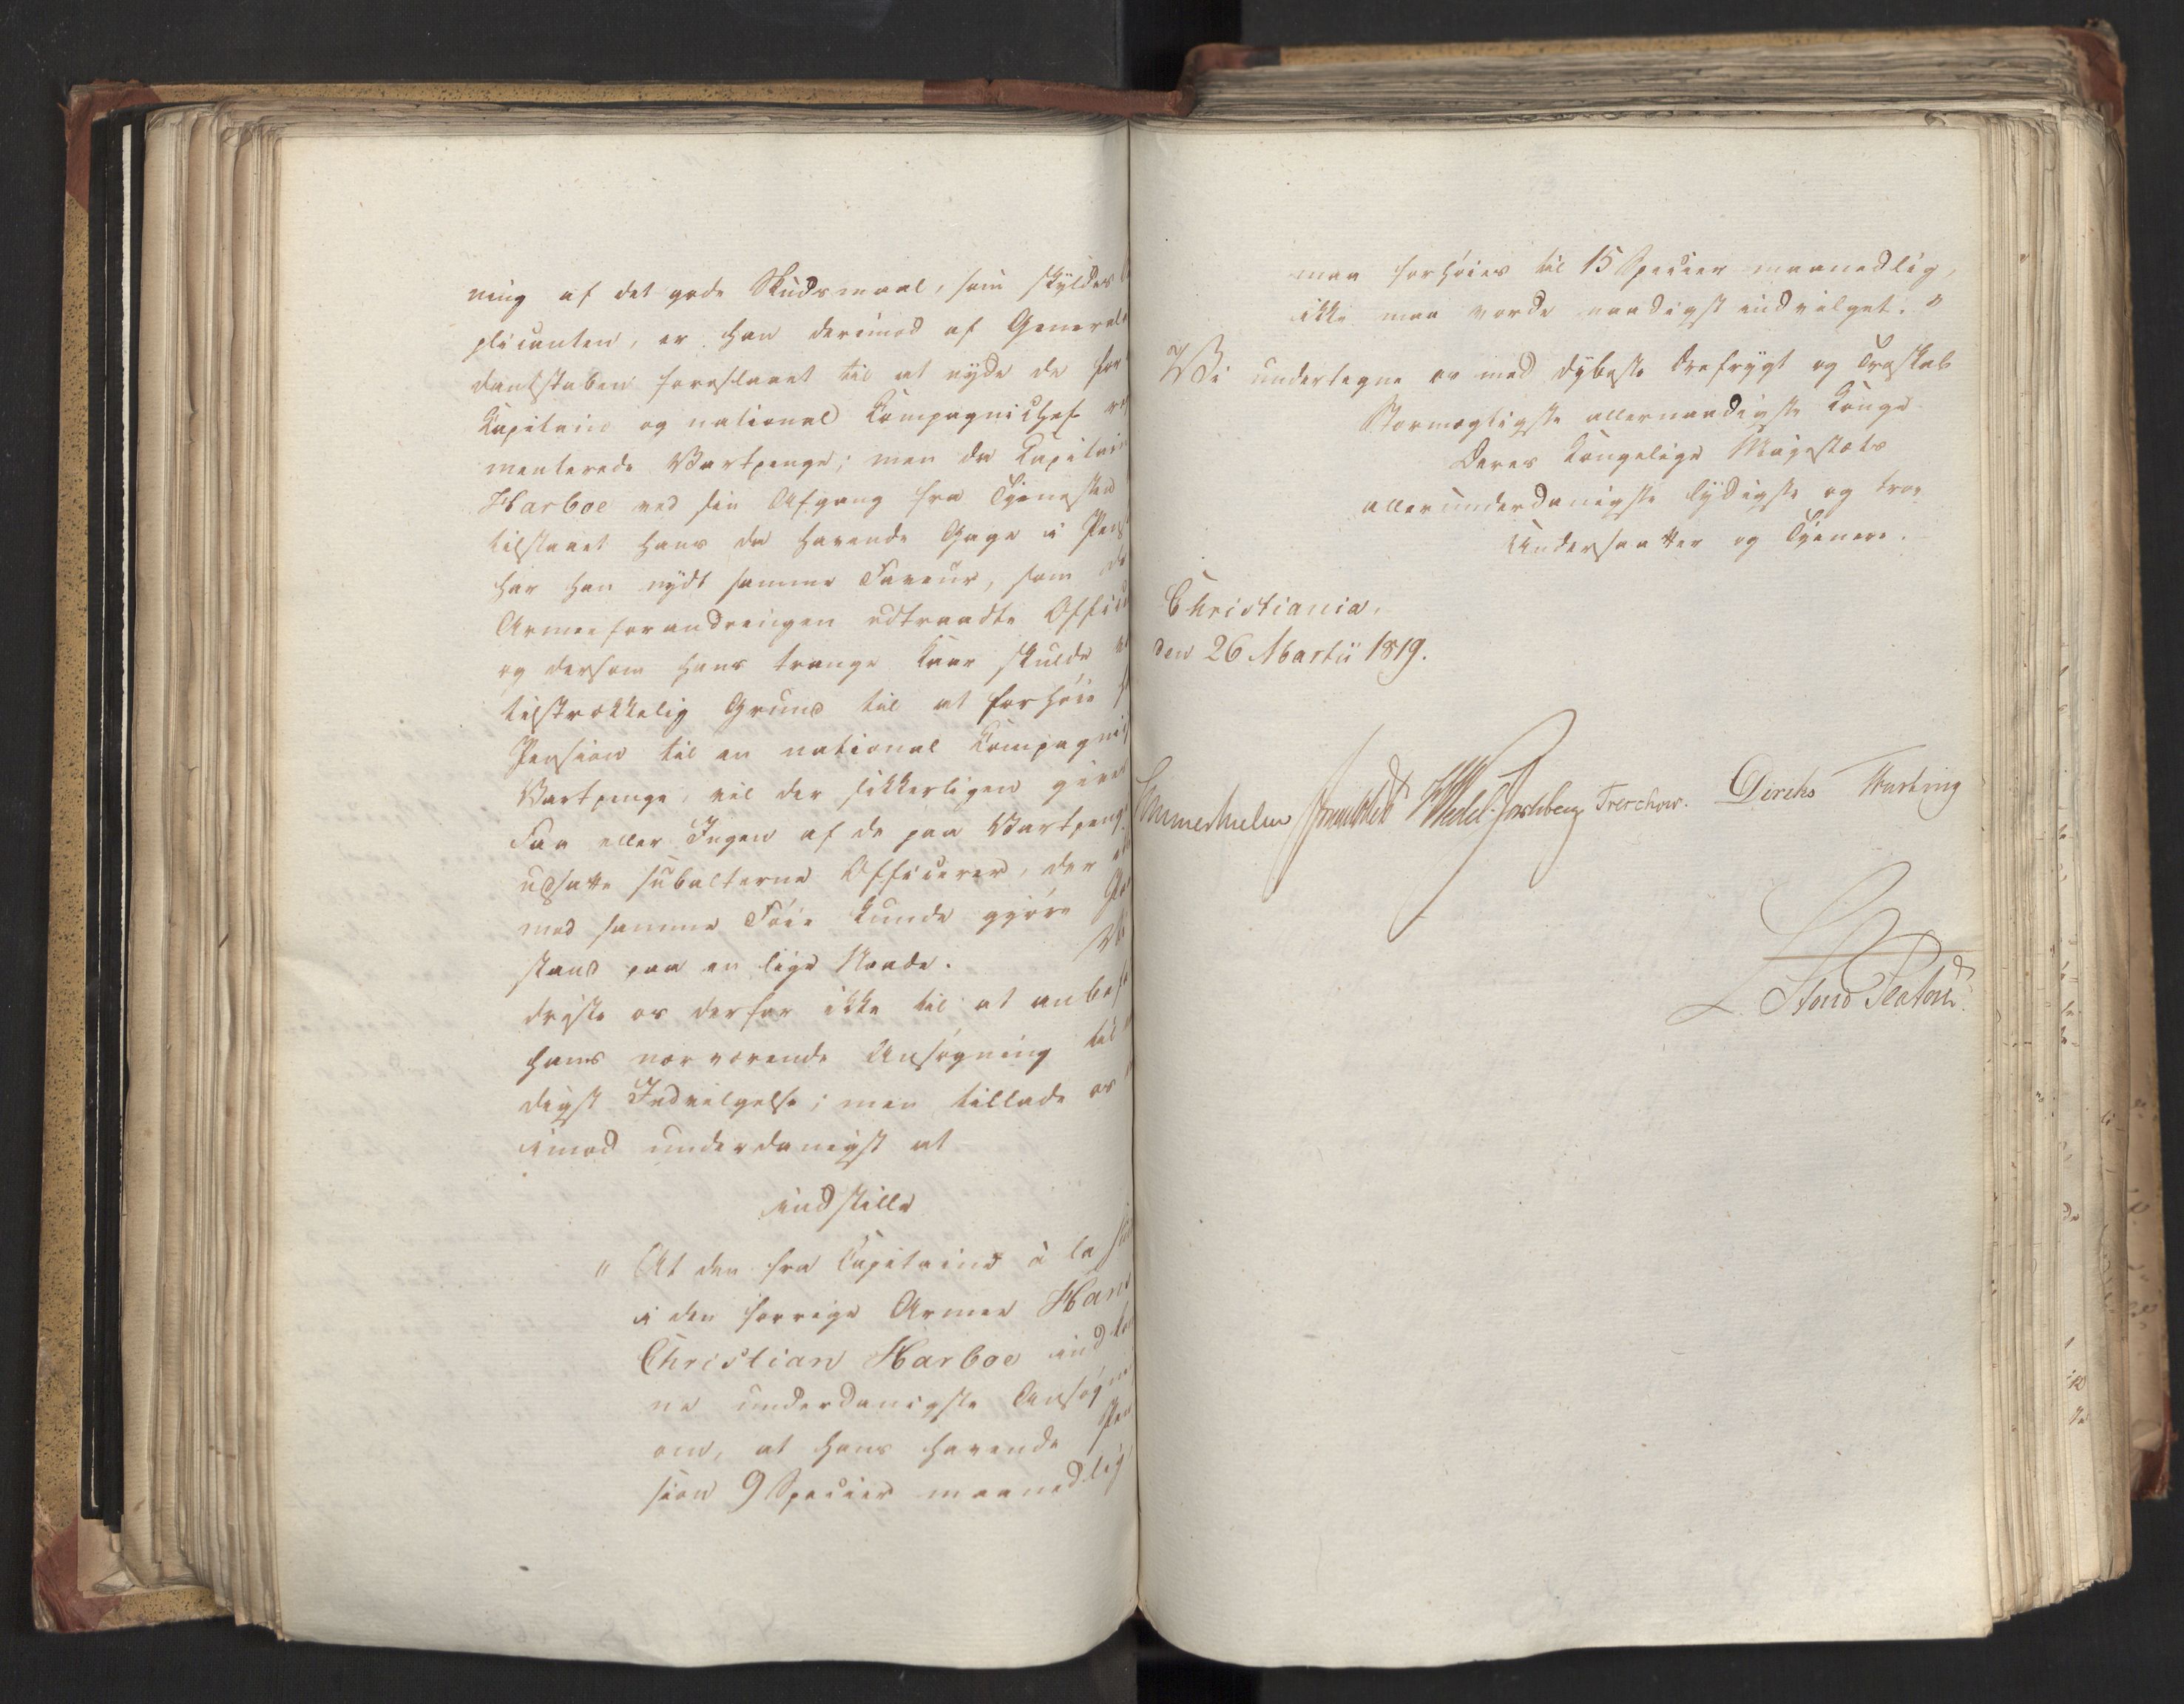 ning af det gode Skudsmaal, som skyldes
plicanten, er han derimod af General
dantstaben foreslaaet til at nyde de for
Capitain og national Compagnichef
menterede Vartpenge; men da Capitain
Harboe ved sin Afgang fra Tjenesten
tilstaaet hans da havende Gage i Pens
har han nydt samme Faveur, som de
Armeeforandringen udtraadte Offici
og dersom hans trange Kaar skulde
tilstrækkelig Grund til at forhöie
Pension til en national Compagni
Vartpenge, vil der sikkerligen gives
Faa eller Ingen af de paa Vartpeng
udsatte subalterne Officerer, der
med samme Föie kunde gjöre
stand paa en lige Naade. Vi
driste os derfor ikke til at anbef
hans nærværende Ansögning til
digst Indvilgelse; men tillade os
imod underdanigst at
indstille
" At den fra Capitaine à la
i den forrige Armee Hans
Christian Harboe ind
ne underdanigste Ansøg
om, at hans havende Pen
sion 9 Specier maanedlig
maa forhöies til 15 Specier maanedlig,
ikke maa vorde naadigst indvilget. "
Vi undertegne os med dybeste Ærefrygt og Troskab
Stormægtigste allernaadigste Konge
Deres Kongelige Majestæts
allerunderdanigste lydigste og troe
Undersaatter og Tjenere.
Christiania,
den 26 Martii 1819.
Sommerhielm Krumbholdt HWedel-Jarlsberg Treschow. Diriks Fasting
L. Stoud Platou